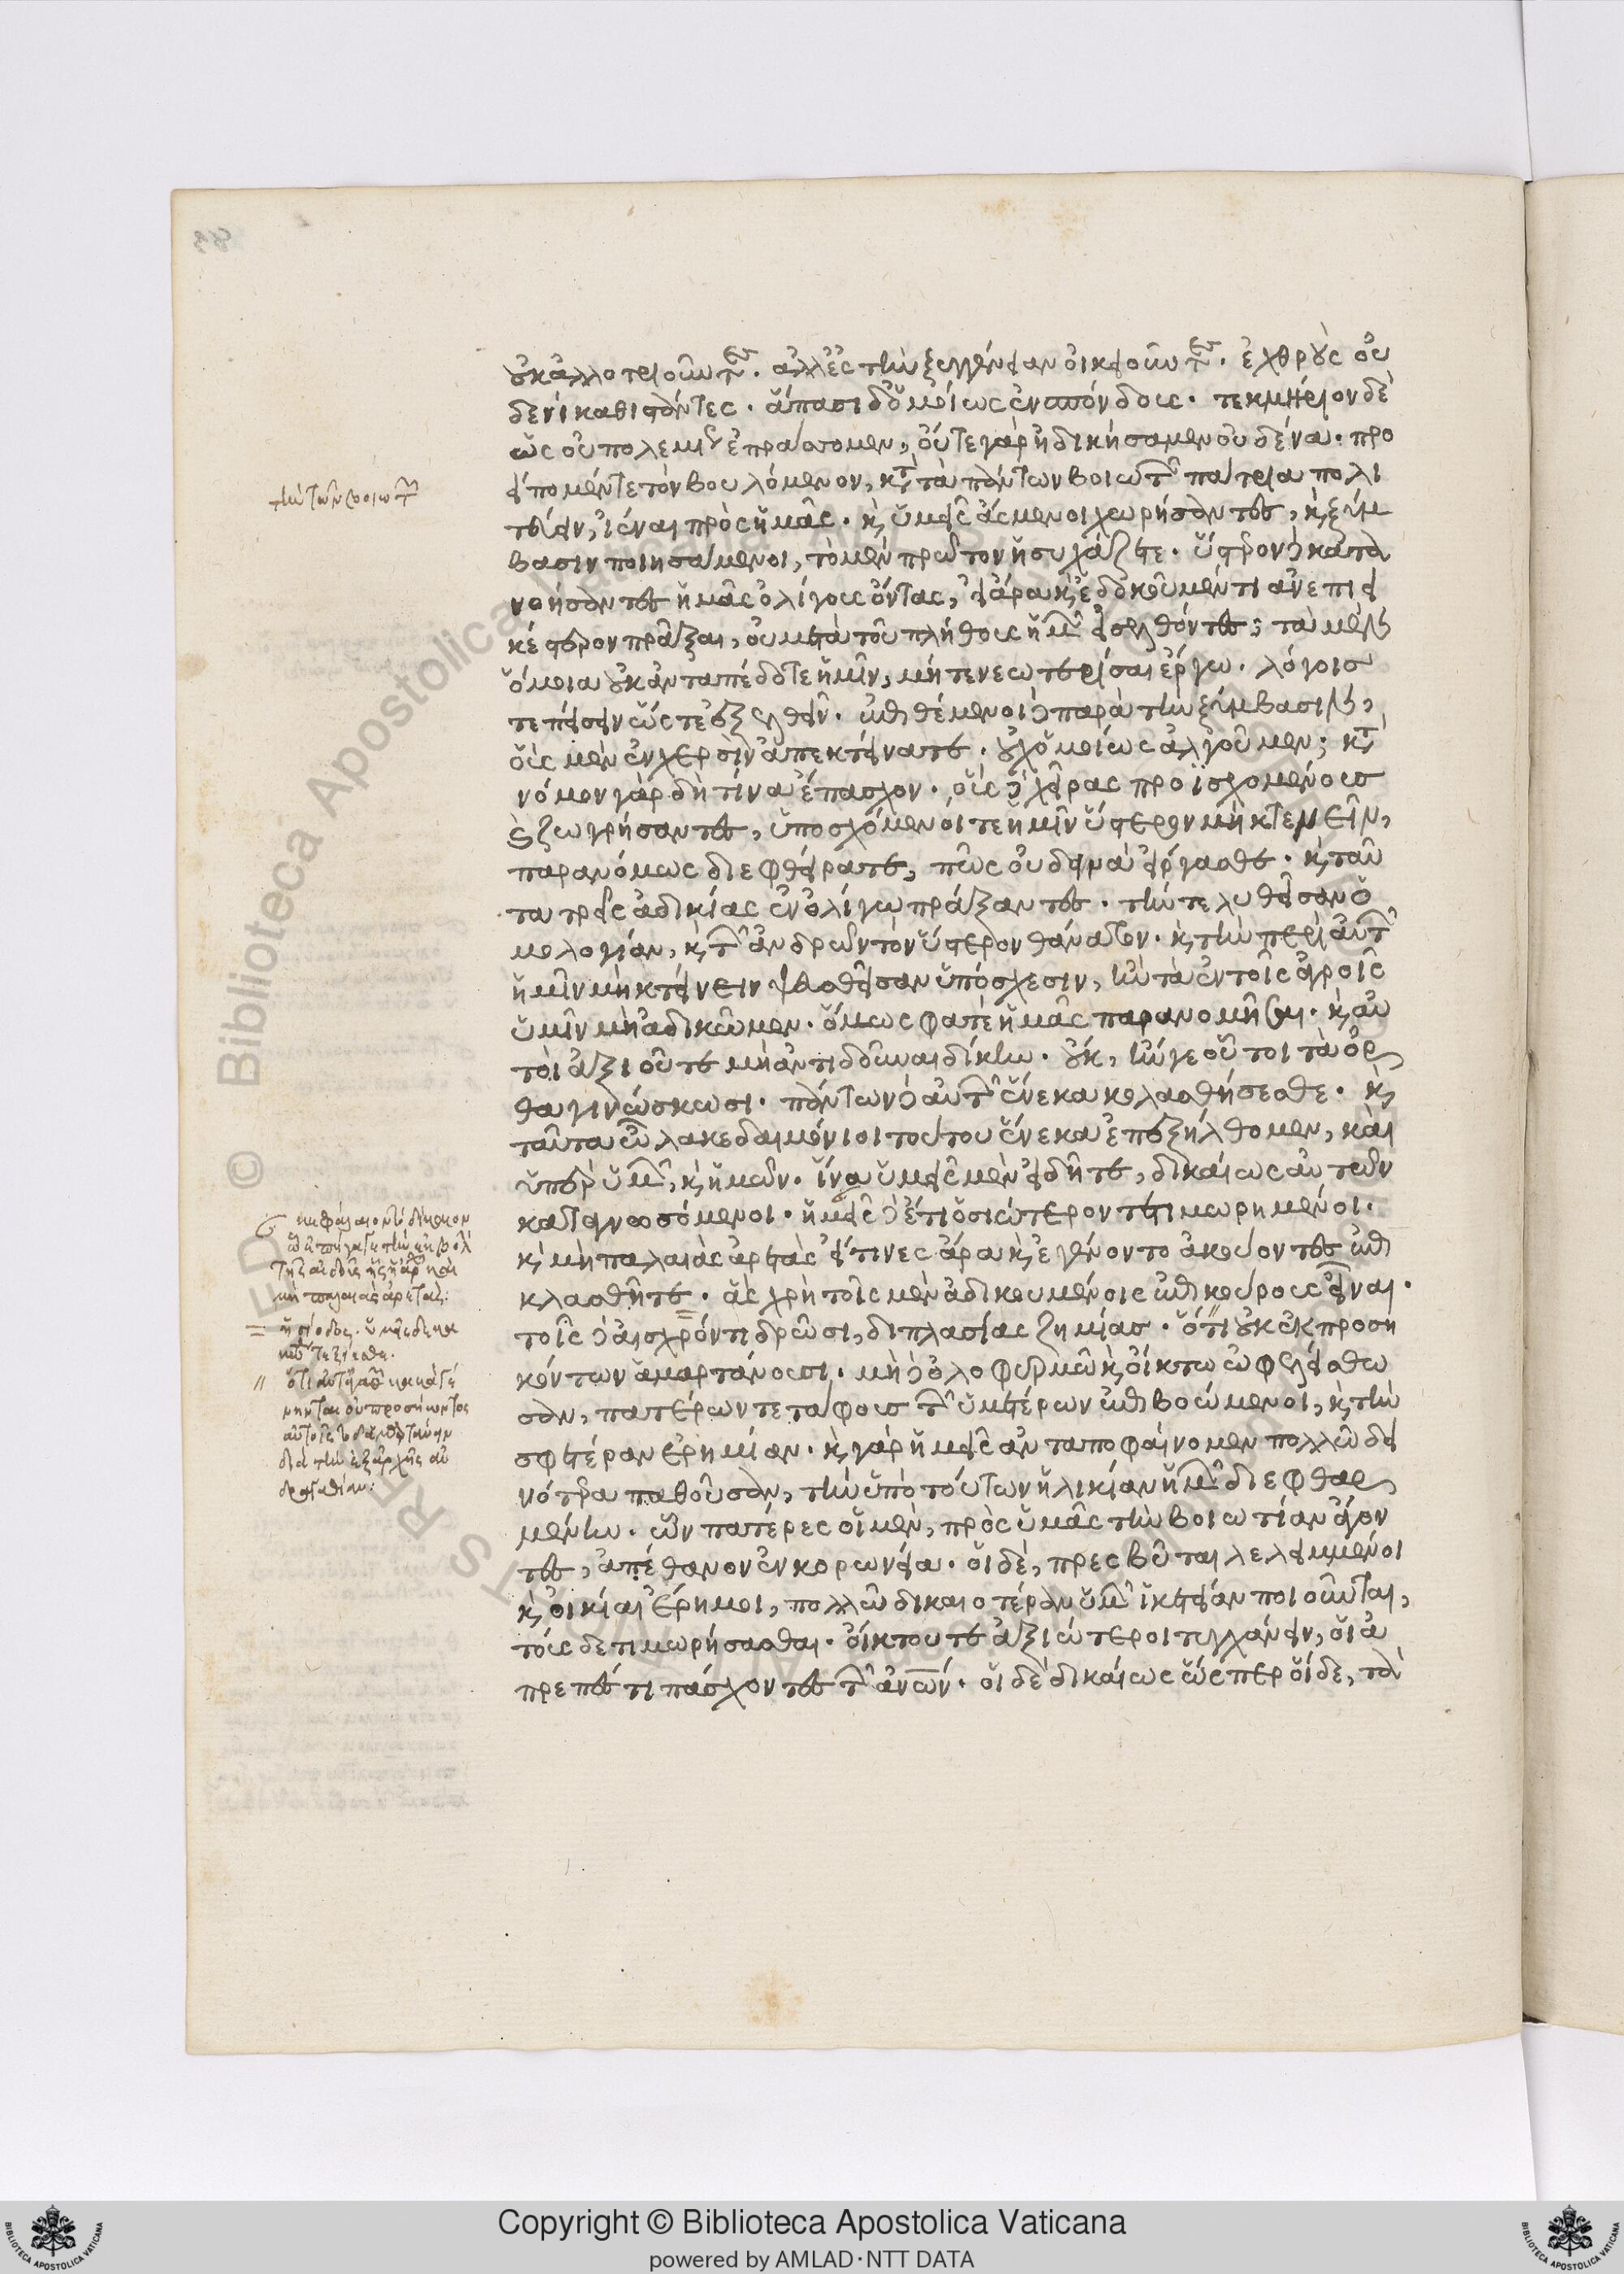 οὐκ ἀλλοτριοῦντες. ἀλλ' ἐς τὴν ξυγγένειαν οἰκειοῦντες. ἐχθροὺς οὐ
δενὶ καθιστάντες. ἅπασι δ' ὁμοίως ἐνσπόνδους. τεκμήριον δὲ
ὡς οὐ πολεμίως ἐπράσσομεν, οὔτε γὰρ ἠδικήσαμεν οὐδένα. προ
είπομέν τε τὸν βουλόμενον, κατὰ τὰ πάντων βοιωτῶν πάτρια πολι
τεύειν, ἰέναι πρὸς ἡμᾶς. καὶ ὑμεῖς ἄσμενοι χωρήσαντες, καὶ ξύμ
βασιν ποιησάμενοι, τὸ μὲν πρῶτον ἡσυχάζετε. ὕστερον δὲ κατα
νοήσαντες ἡμᾶς ὀλίγους ὄντας, εἰ ἄρα καὶ ἐδοκοῦμέν τι ἀνεπιει
κέστερον πρᾶξαι, οὐ μετὰ τοῦ πλήθους ἡμῶν εἰσελθόντες; τὰ μὲν
ὅμοια οὐκ ἀνταπέδοτε ἡμῖν, μήτε νεωτερίσαι ἔργω. λόγοισ
τε πείσειν ὥστε ἐξελθεῖν. ἐπιθέμενοι δὲ παρὰ τὴν ξύμβασιν,
οὓς μὲν ἐν χερσὶν ἀπεκτείνατε. οὐχ ὁμοίως ἀλγοῦμεν; κατὰ
νόμον γὰρ δή τινα ἔπασχον. οὓς δὲ χεῖρας προϊσχομένους
καὶ ζωγρήσαντες, ὑποσχόμενοί τε ἡμῖν ὕστερον μὴ κτενεῖν,
παρανόμως διεφθείρατε, πῶς οὐ δεινὰ εἴργασθε. καὶ ταῦ
τα τρεῖς ἀδικίας ἐν ὀλίγω πράξαντες. τήν τε λυθεῖσαν ὁ
μολογίαν, καὶ τῶν ἀνδρῶν τὸν ὕστερον θάνατον. καὶ τὴν περὶ αὐτῶν
ἡμῖν μὴ κτείνειν ψευσθεῖσαν ὑπόσχεσιν, ἢν τὰ ἐν τοῖς ἀγροῖς
ὑμῖν μὴ ἀδικῶμεν. ὅμως φατὲ ἡμᾶς παρανομῆσαι. καὶ αὐ
τοὶ ἀξιοῦτε μὴ ἀντιδοῦναι δίκην. οὔκ, ἤν γε οὗτοι τὰ ὀρ
θὰ γινώσκωσι. πάντων δὲ αὐτῶν ἕνεκα κολασθήσεσθε. καὶ
ταῦτα ὦ λακεδαιμόνιοι τούτου ἕνεκα ἐπεξήλθομεν, καὶ
ὑπὲρ ὑμῶν, καὶ ἡμῶν. ἵνα ὑμεῖς μὲν εἰδῆτε, δικαίως αὐτῶν
καταγνωσόμενοι. ἡμεῖς δὲ ἔτι ὁσιώτερον τετιμωρημένοι.
καὶ μὴ παλαιὰς ἀρετὰς εἴ τινες ἄρα καὶ ἐγένοντο ἀκούοντες ἐπι
κλασθῆτε. ἃς χρὴ τοῖς μὲν ἀδικουμένοις ἐπικούρους εἶναι.
τοῖς δὲ αἰσχρόν τι δρῶσι, διπλασίας ζημίασ. ὅτι οὐκ ἐκ προση
κόντων ἁμαρτάνουσι. μὴ δὲ ὀλοφυρμῶ καὶ οἴκτω ὠφελείσθω
σαν, πατέρων τε τάφουσ τῶν ὑμετέρων ἐπιβοώμενοι, καὶ τὴν
σφετέραν ἐρημίαν. καὶ γὰρ ἡμεῖς ἀνταποφαίνομεν πολλῶ δει
νότερα παθοῦσαν, τὴν ὑπὸ τούτων ἡλικίαν ἡμῶν διεφθαρ
μένην. ὧν πατέρες οἱ μὲν, πρὸς ὑμᾶς τὴν βοιωτίαν ἄγον
τες, ἀπέθανον ἐν κορωνεία. οἱ δὲ, πρεσβῦται λελειμμένοι
καὶ οἰκίαι ἔρημοι, πολλῶ δικαιοτέραν ὑμῶν ἱκετείαν ποιοῦνται,
τούσδε τιμωρήσασθαι. οἴκτου τε ἀξιώτεροι τυγχάνειν, οἱ ἀ
πρεπές τι πάσχοντες τῶν ἀνθρώπων. οἱ δὲ δικαίως ὥσπερ οἵδε, τὰ
τὴν τῶν βοιωτῶν